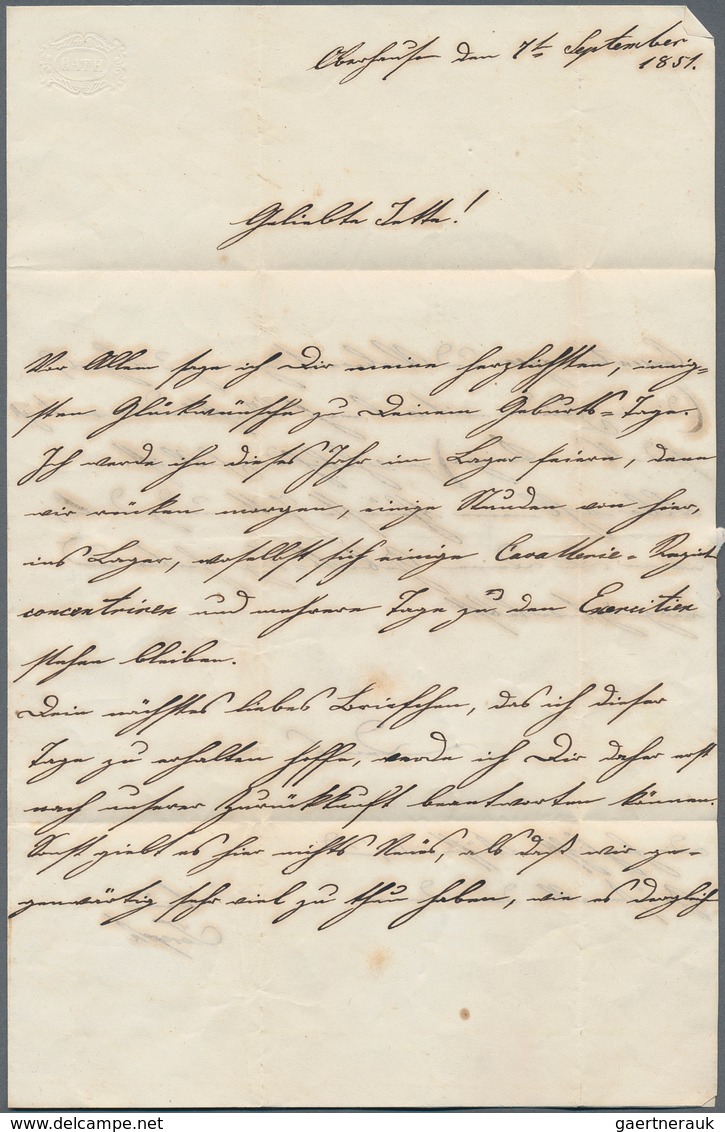 BATH
Oberhause den 7t September
1851.
Geliebte Jette!
Vor Allem sage ich Dir meine herzlichsten, innig=
sten Glückwünsche zu Deinem Geburts=Tage.
Ich werde ihn dieses Jahr im Lager feiern, denn
wir rücken morgen, einige Stunden von hier,
ins Lager, woselbst sich einige Cavallerie=Regit
concentriren und mehrere Tage zu den Exercitien
stehen bleiben.
Dein nächstes liebes Briefchen, das ich dieser
Tage zu erhalten hoffe, werde ich Dir daher erst
nach unserer Zurückkunft beantworten können.
Sonst giebt es hier nichts Neues, als daß wir ge=
genwärtig sehr viel zu thun haben, wie es dergleich
gaertnerauk